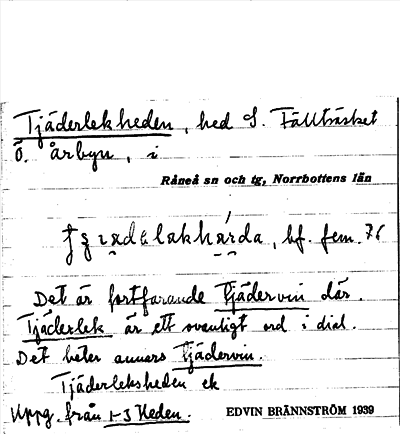 Tjäderlekheden, hed S. Fällträsket
Ö. årbyn, i
Råneå sn och tg, Norrbottens län
bf. fem. 76
Det är fortfarande tjädervin där.
Tjäderlek är ett ovanligt ord i dial.
Det heter annars tjädervin.
Tjäderleksheden ek
Uppg. från 1-3 Heden.
EDVIN BRÄNNSTRÖM 1939